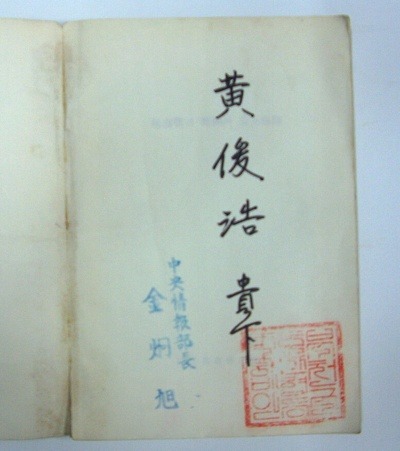 黄俊浩 貴下
中央情報部長
金炯旭